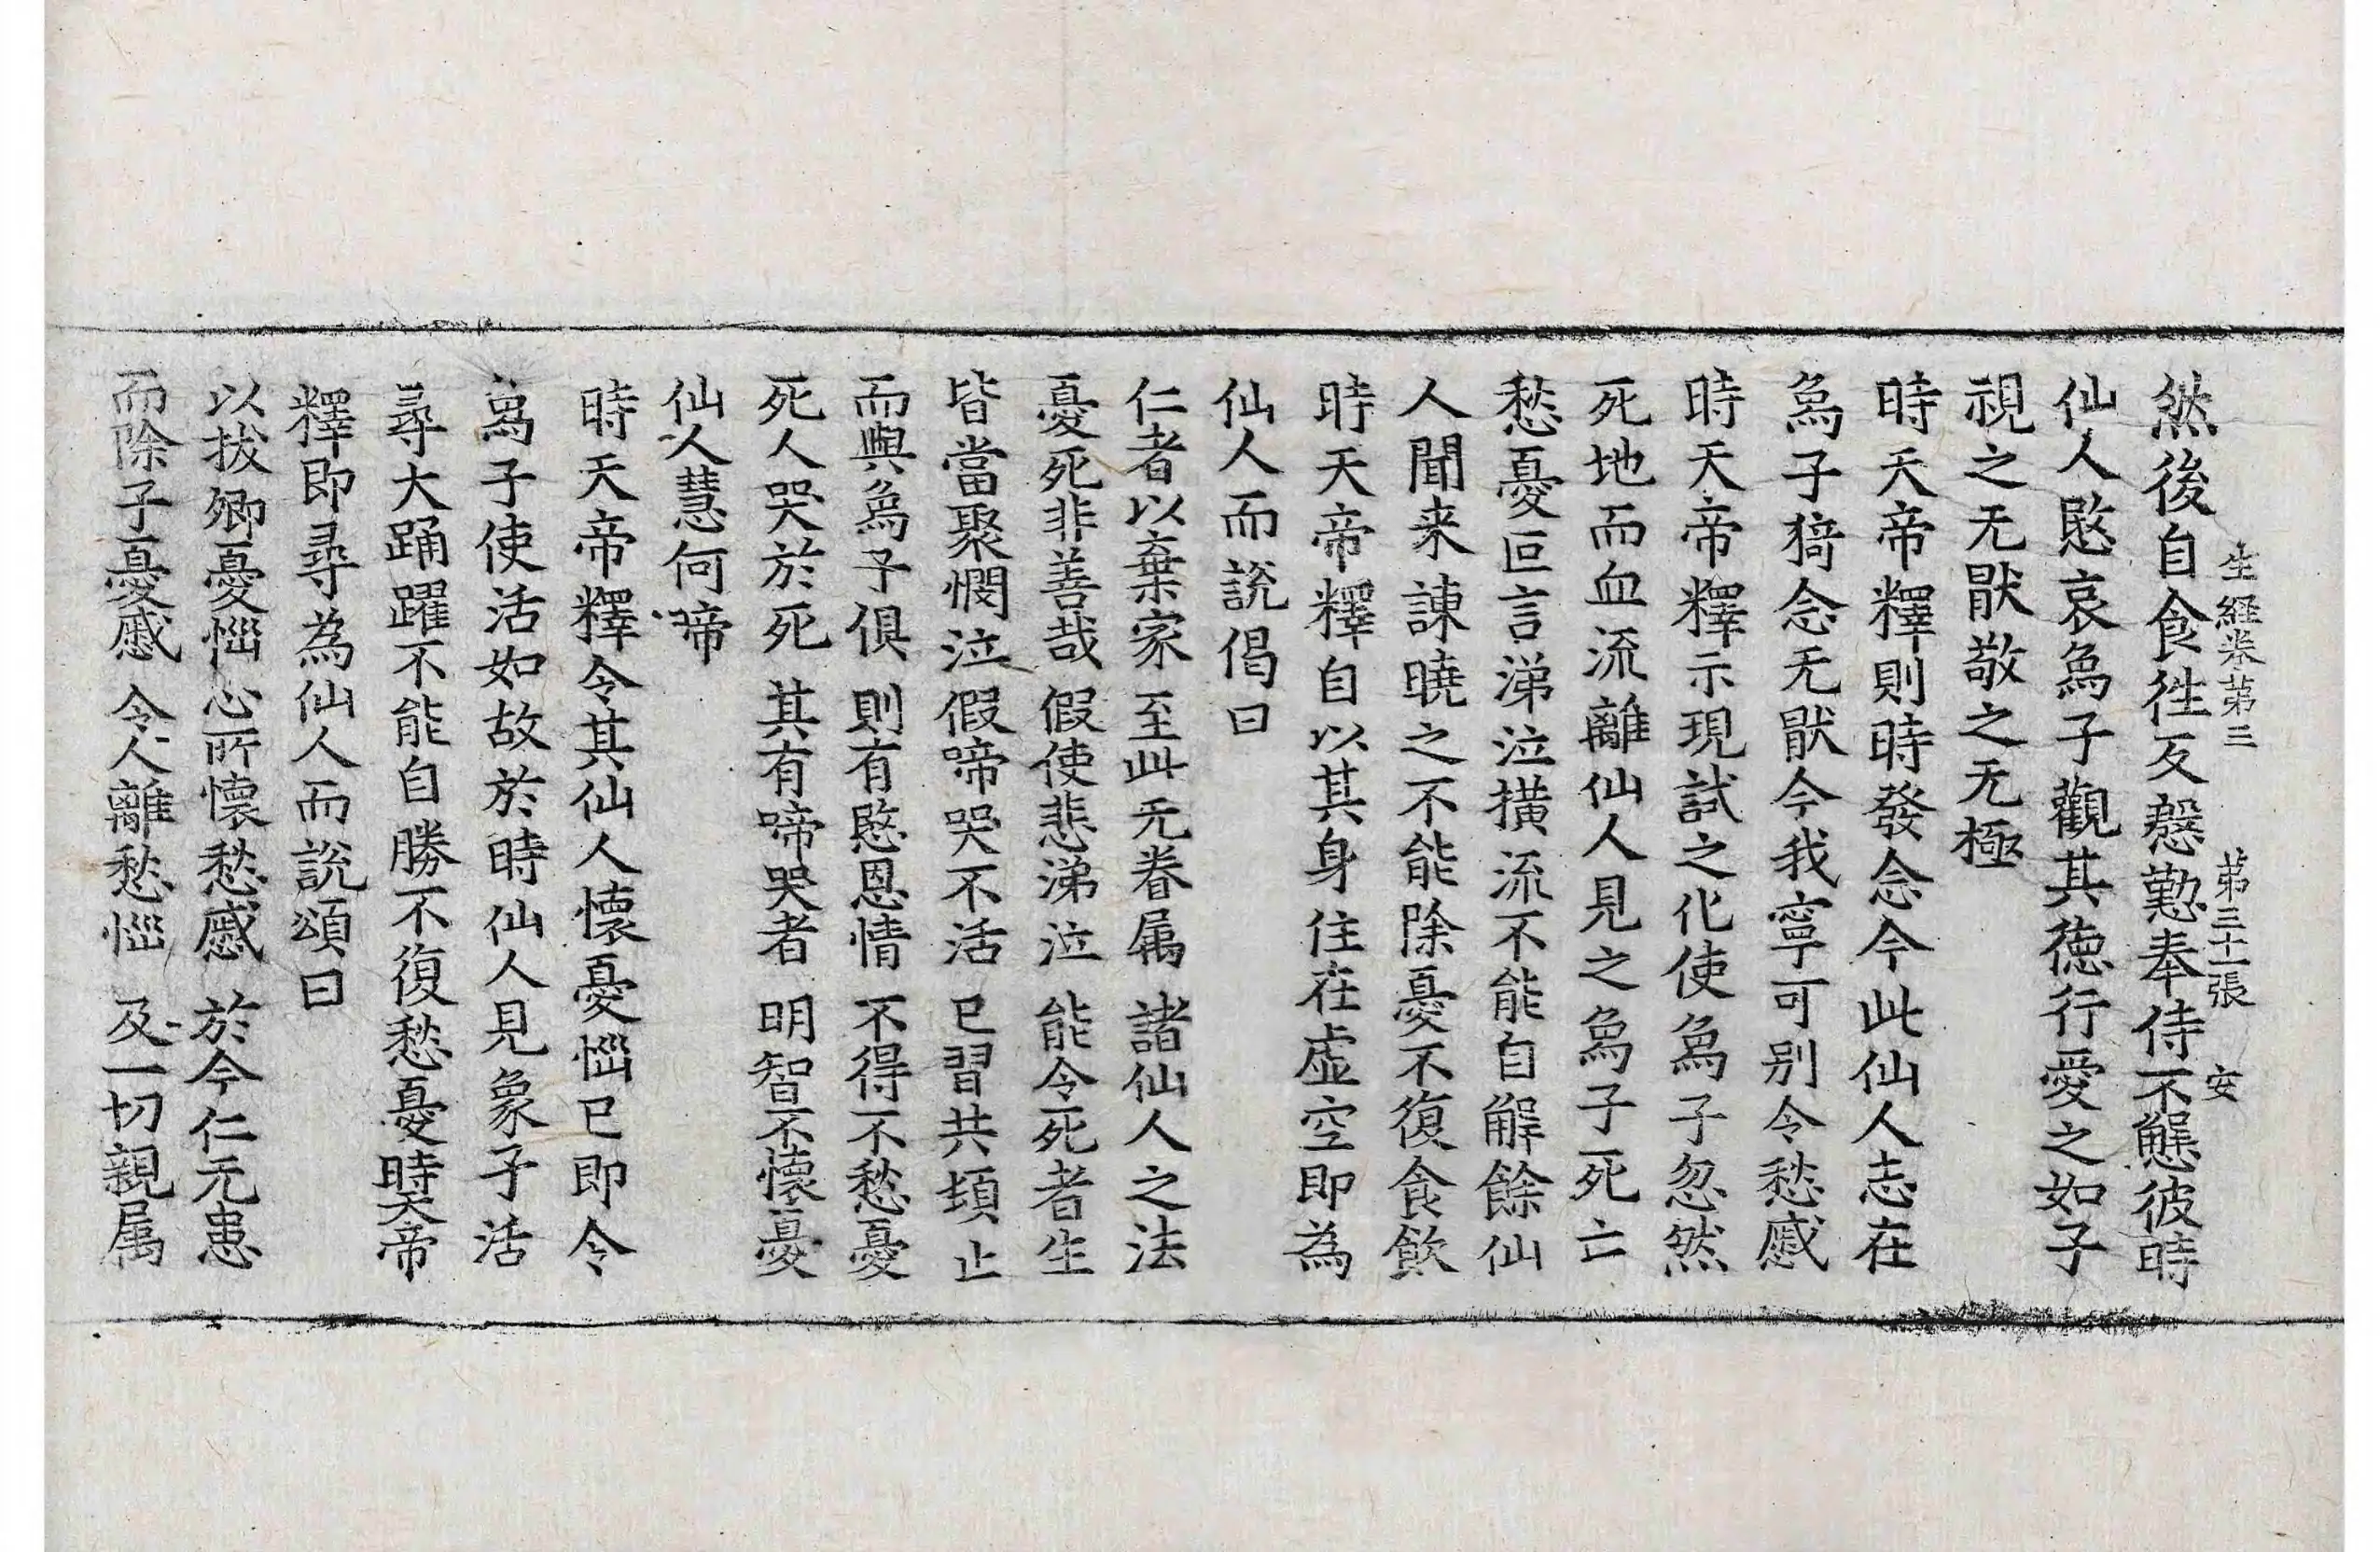 生經卷第三　第三十一張　安
然後自食徃反慇懃奉侍不懈彼時
仙人愍哀爲子觀其德行愛之如子
視之无猒敬之无極
時天帝釋則時發念今此仙人志在
爲子猗念无猒今我寧可别令愁慼
時天帝釋示現試之化使爲子忽然
死地而血流離仙人見之爲子死亡
愁憂叵言涕泣横流不能自解餘仙
人聞来諫曉之不能除憂不復食飲
時天帝釋自以其身住在虛空即為
仙人而說偈曰
仁者以棄家　至此无眷属　諸仙人之法
憂死非善哉　假使悲涕泣　能令死者生
皆當聚憫泣　假啼哭不活　已習共頊止
而與爲子俱　則有愍恩情　不得不愁憂
死人哭於死　其有啼哭者　明智不懷憂
仙人慧何啼
時天帝釋令其仙人懷憂惱已即令
爲子使活如故於時仙人見象子活
尋大踊躍不能自勝不復愁憂時天帝
釋即尋為仙人而說頌曰
以拔卿憂惱　心所懷愁慼　於今仁无患
而除子憂慼　令人離愁惱　及一切親属